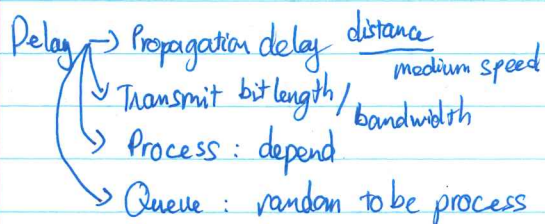 Delay → Propagation delay distance / medium speed
Transmit bit length / bandwidth
Process : depend
Queue : random to be process